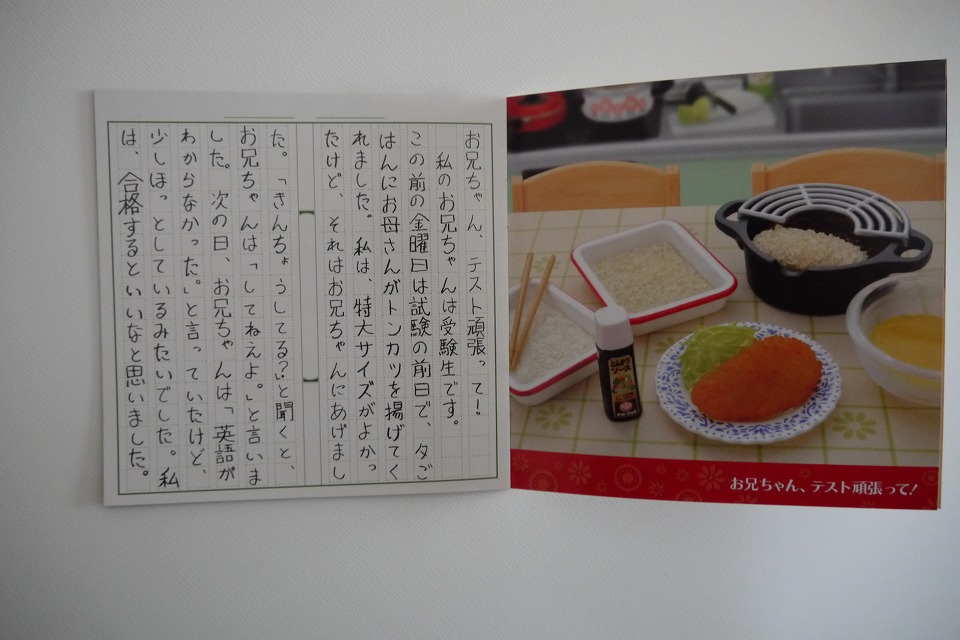 お兄ちゃん、テスト頑張って！
私のお兄ちゃんは受験生です。
この前の金曜日は試験の前日で、夕ご
はんにお母さんがトンカツを揚げてく
れました。私は、特大サイズがよかっ
たけど、それはお兄ちゃんにあげまし
た。「きんちょうしてる？」と聞くと、
お兄ちゃんは「してねえよ。」と言いま
した。次の日、お兄ちゃんは「英語が
わからなかった。」と言っていたけど、
少しほっとしているみたいでした。私
は、合格するといいなと思いました。
とんかつ
ソース
お兄ちゃん、テスト頑張って！